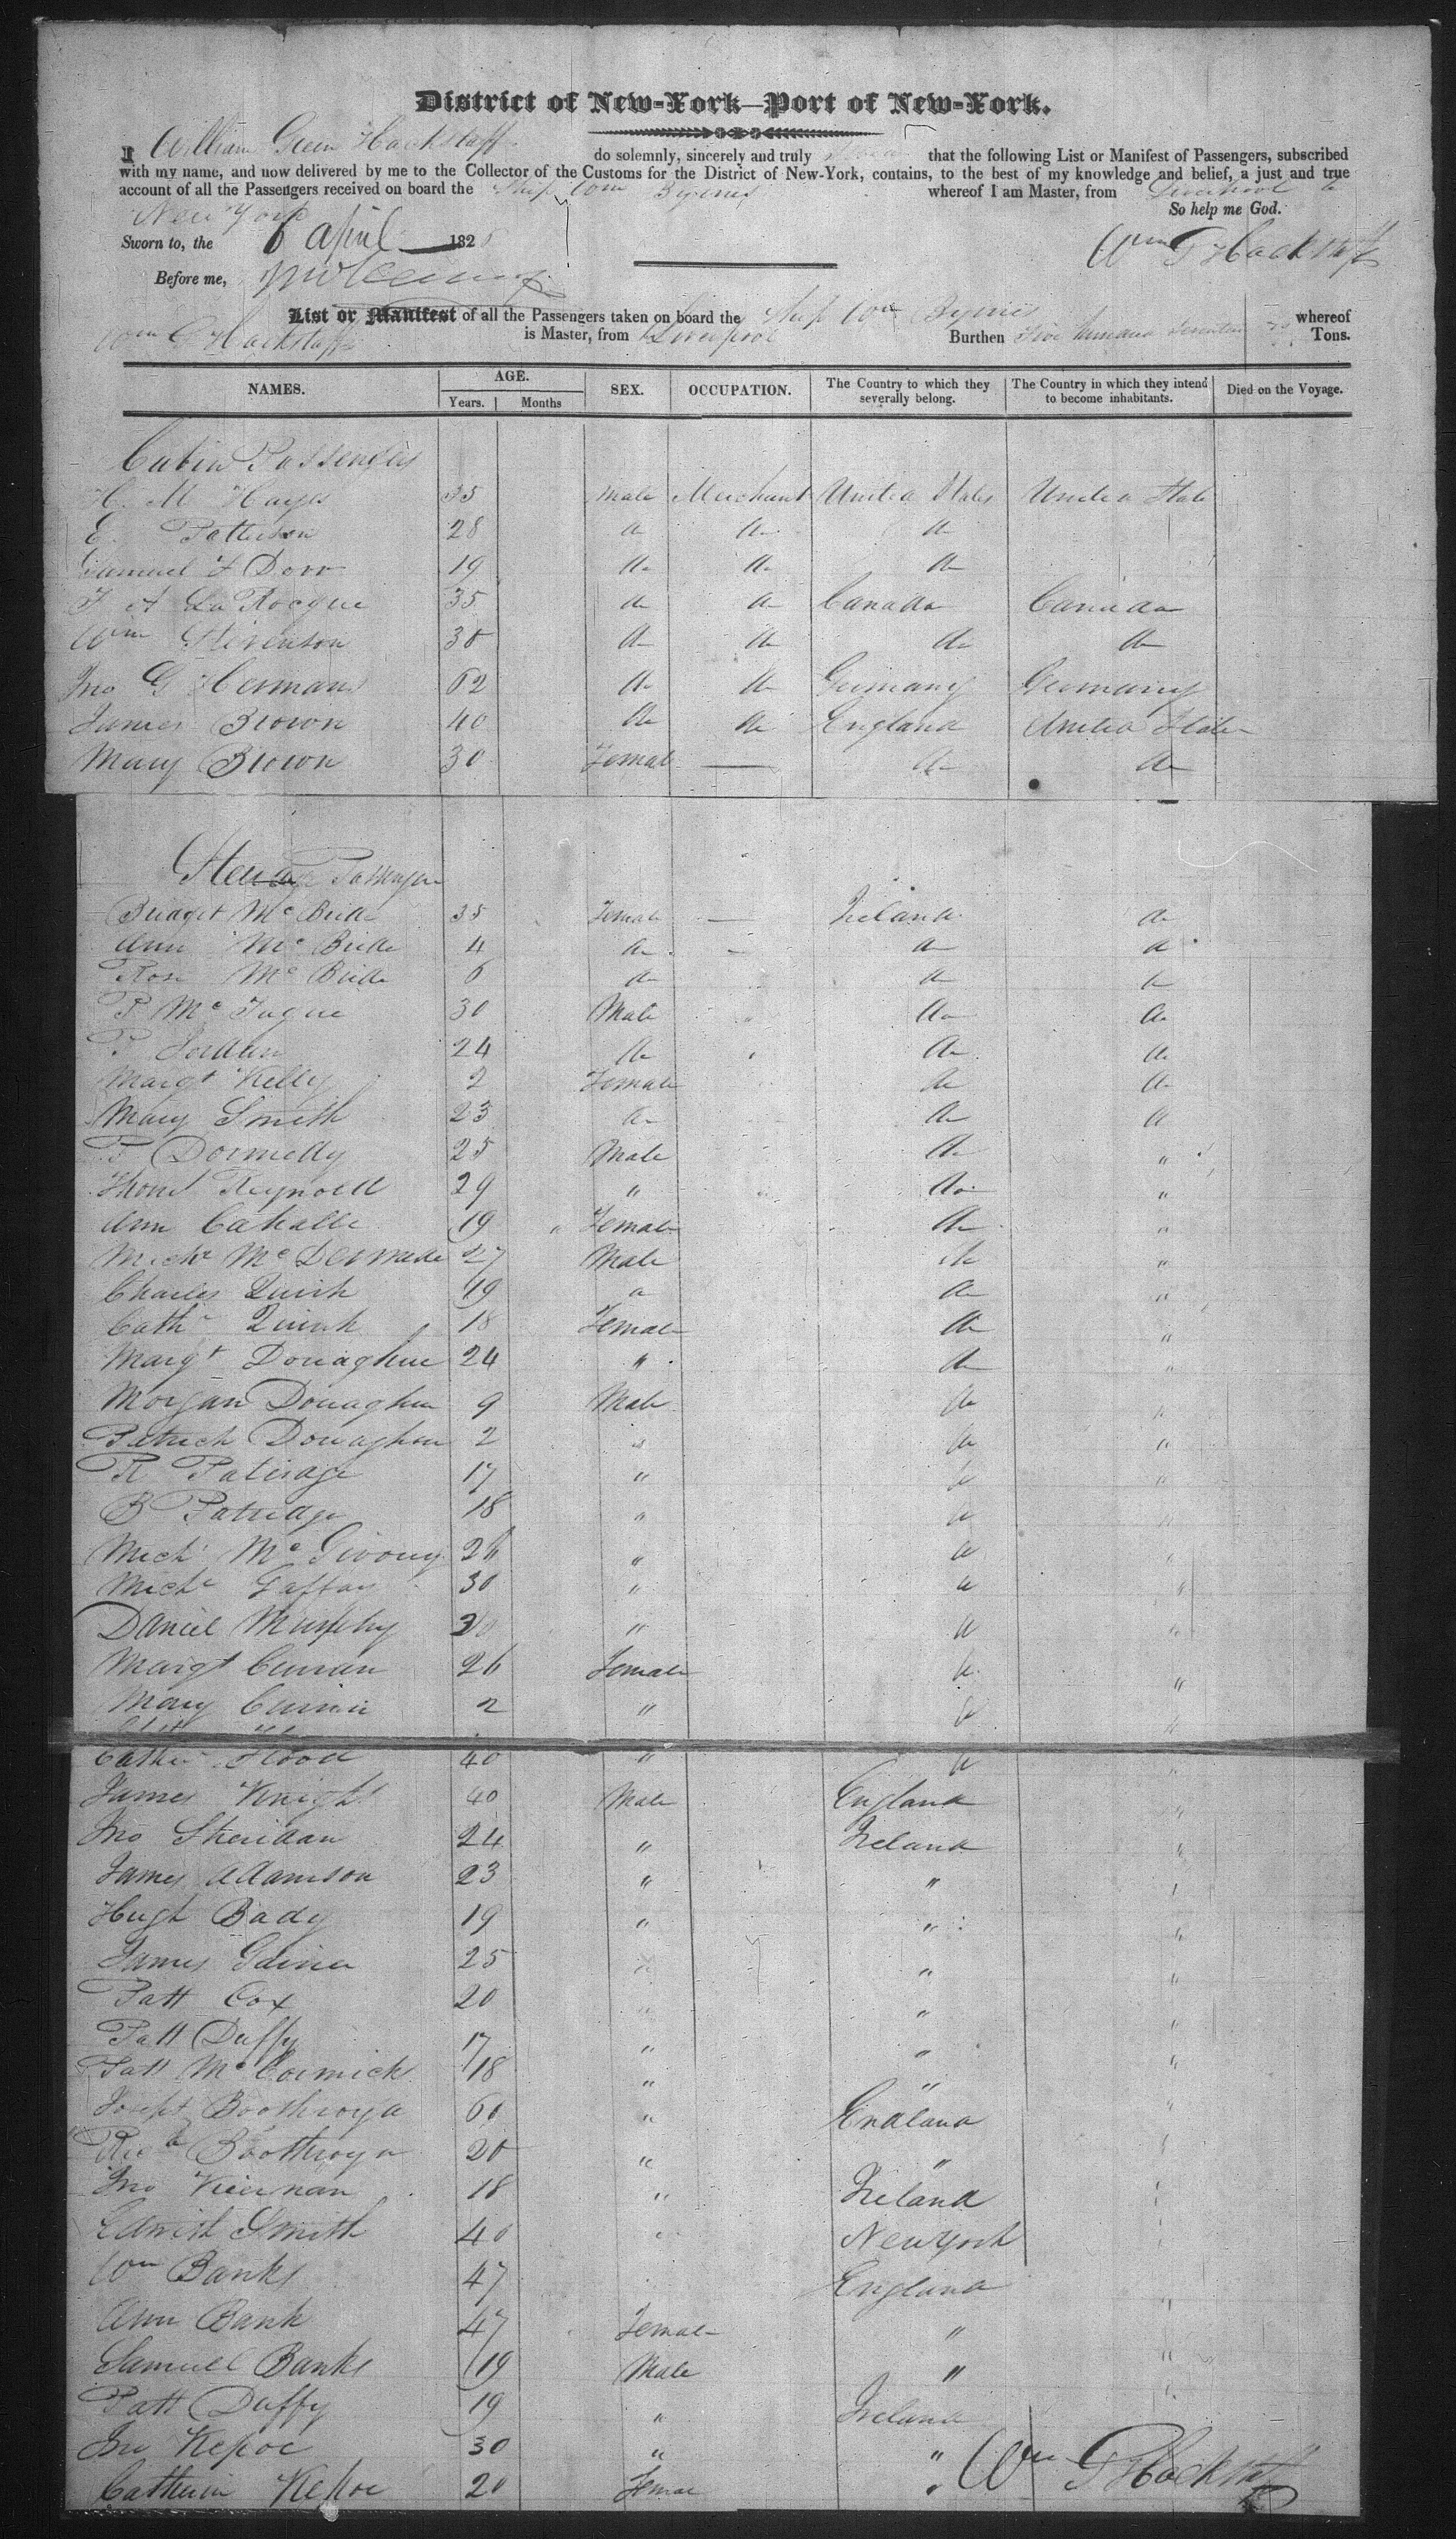 District of New-York—Port of New-York.
I William Green Hackstaff do solemnly, sincerely and truly swear that the following List or Manifest of Passengers, subscribed
with my name, and now delivered by me to the Collector of the Customs for the District of New-York, contains, to the best of my knowledge and belief, a just and true
account of all the Passengers received on board the Ship Wm Byrnes whereof I am Master, from Liverpool to
New York So help me God.
Sworn to, the 6 April 182
Wm G Hackstaff
Before me,
List or Manifest of all the Passengers taken on board the Ship Wm Byrnes whereof
Wm G Hackstaff is Master, from Liverpool Burthen five hundred Seventeen Tons.
NAMES. AGE. Years. Months SEX. OCCUPATION. The Country to which they severally belong. The Country in which they intend to become inhabitants. Died on the Voyage.
Cabin Passengers
H. M Hayes 35 Male Merchant United States United State
E. Patterson 28 do do do
Samuel F Dorr 19 do do do
F A LaRocque 35 do do Canada Canada
Wm Stevenson 30 do do do do
Jno G Hermans 62 do do Germany Germany
James Brown 40 do do England United States
Mary Brown 30 Female — do do
Steerage Passengers
Bridget McBride 35 Female — Ireland do
Ann McBride 4 do - do do
Rose McBride 6 do do do
P McTague 30 Male " do do
P Jordan 24 do " do do
Margt Kelly 2 Female do do
Mary Smith 23 do do do
P Donnelly 25 Male do "
Thoms Reynold 29 " do "
Ann Cahalle 19 Female do "
Michl McDermade 27 Male do "
Charles Quirk 19 do do "
Cathe Quirk 18 Female do "
Margt Donaghue 24 " do "
Morgan Donaghue 9 Male do "
Patrick Donaghue 2 " do "
R Patridge 17 " do "
B Patridge 18 " do "
Michl McGivony 26 " do "
Michl Gaffay 30 " do "
Daniel Murphy 30 " do "
Margt Curran 26 Female do "
Mary Curran 2 " do "
Cathe Flood 40 " do "
James Knight 40 Male England "
Jno Sheridan 24 " Ireland "
James Adamson 23 " " "
Hugh Bady 19 " " "
James 25 " " "
Patt Cox 20 " " "
Patt Duffy 17 " " "
Patt McCormick 18 " " "
Joseph Boothroyd 60 " England "
Richd Boothroyd 20 " " "
Jno Kiernan 18 " Ireland "
Edward Smith 40 " New York "
Wm Banks 47 England
Ann Bank 47 Female " "
Samuel Banks 19 Male " "
Patt Duffy 19 " Ireland
Jno Kehoe 30 " "
Catherin Kehoe 20 Female "
Wm G Hackstaff